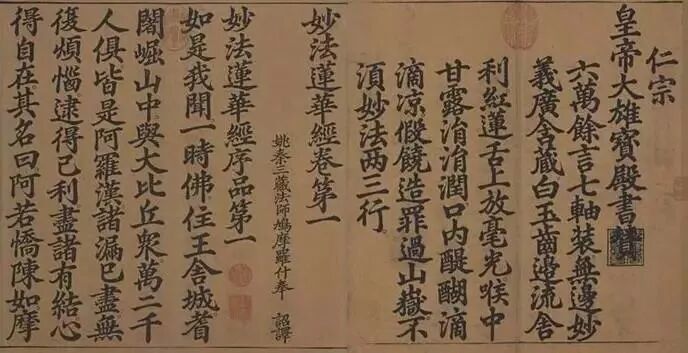 仁宗
皇帝大雄寶殿書讚
六萬餘言七軸装無邊妙
義廣含藏白玉齒邊流舍
利紅蓮舌上放毫光喉中
甘露涓涓潤口内醍醐滴
滴凉假饒造罪過山嶽不
須妙法两三行
妙法蓮華經卷第一
姚秦三藏法師鳩摩羅什奉 詔譯
妙法蓮華經序品第一
如是我聞一時佛住王舍城耆
闍崛山中與大比丘衆萬二千
人俱皆是阿羅漢諸漏已盡無
復煩惱逮得己利盡諸有結心
得自在其名曰阿若憍陳如摩